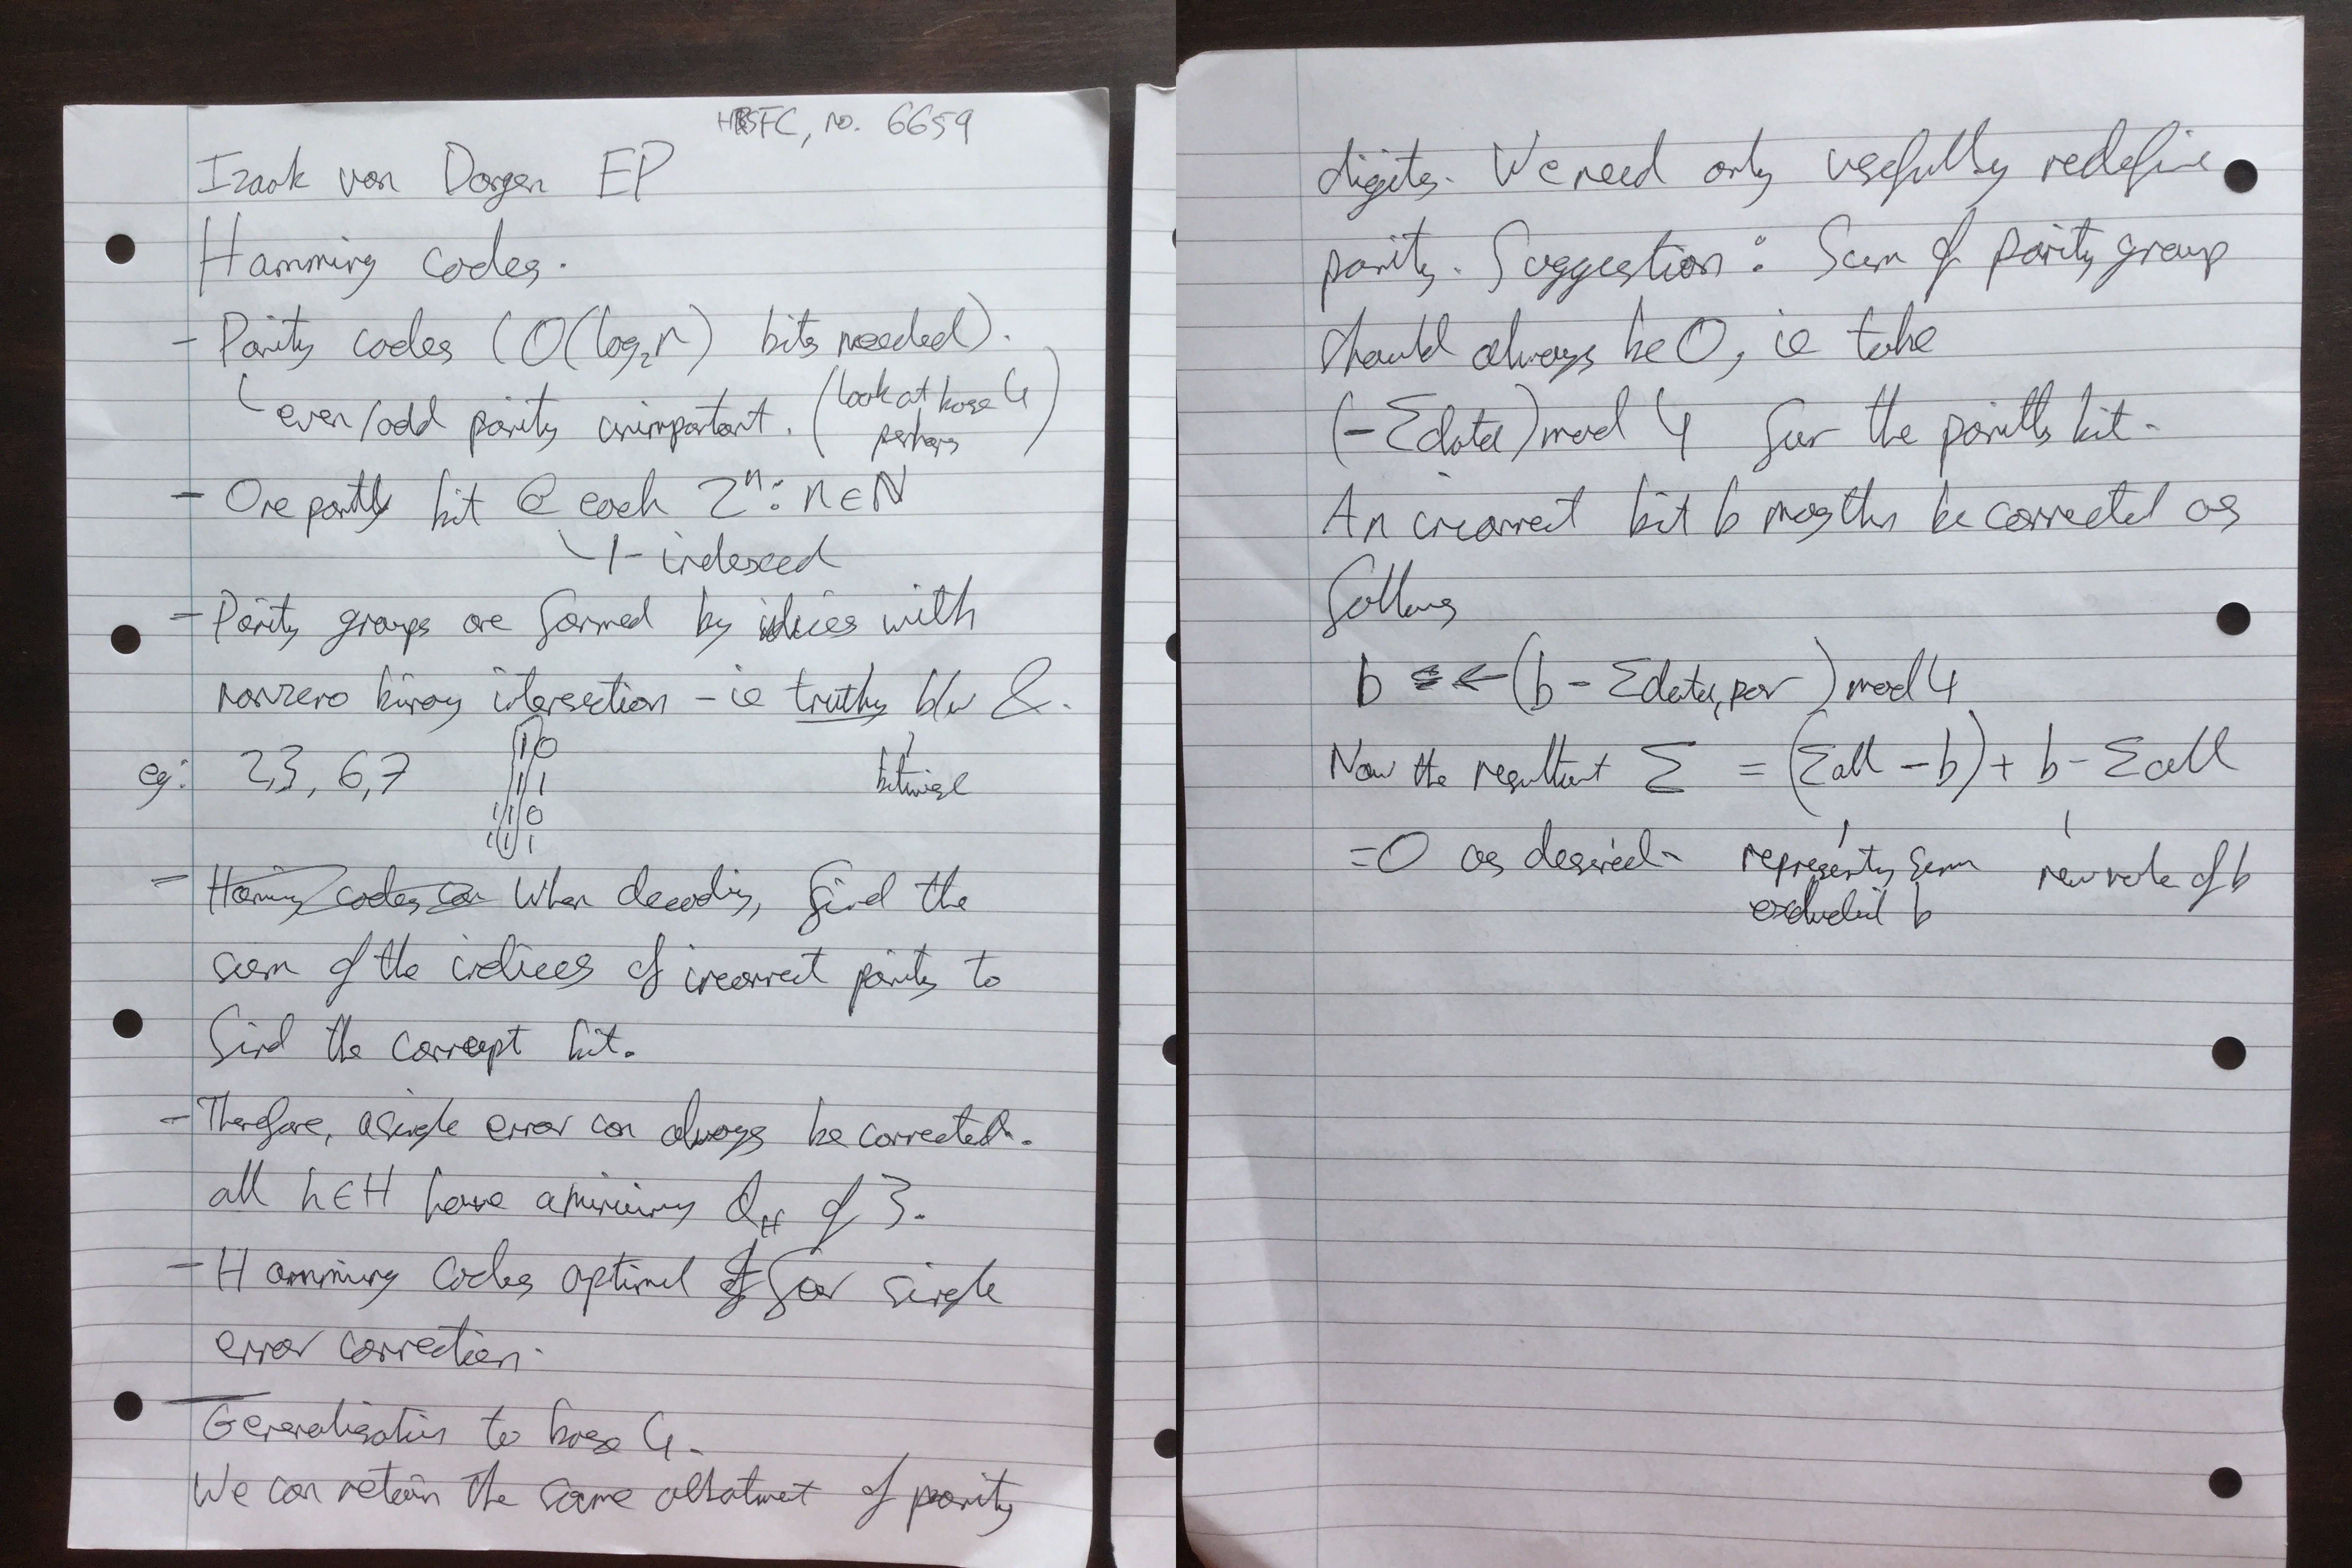 HBSFC, no. 6659
Izaak van Dongen EP
Hamming codes.
- Parity codes (O(log₂n) bits needed).
even/odd parity unimportant. (look at base 4 perhaps)
- One parity bit @ each 2ⁿ: n ∈ ℕ
1-indexed
- Parity groups are formed by indices with
nonzero binary intersection - ie truthy b/w &.
bitwise
eg: 2, 3, 6, 7
10
11
110
111
- Hamming codes can When decoding, find the
sum of the indices of incorrect parity to
find the corrupt bit.
- Therefore, a single error can always be corrected.
all h∈H have a minimum d_H of 3.
- Hamming codes optimal for single
error correction.
Generalisation to base 4.
We can retain the same allotment of parity
digits. We need only usefully redefine
parity. Suggestion: Sum of parity group
should always be 0, ie take
(-Σdata) mod 4 for the parity bit.
An incorrect bit b may then be corrected as
follows
b ← (b - Σdata,par) mod 4
Now the resultant Σ = (Σall - b) + b - Σall
= 0 as desired.
representing sum excluding b
new value of b